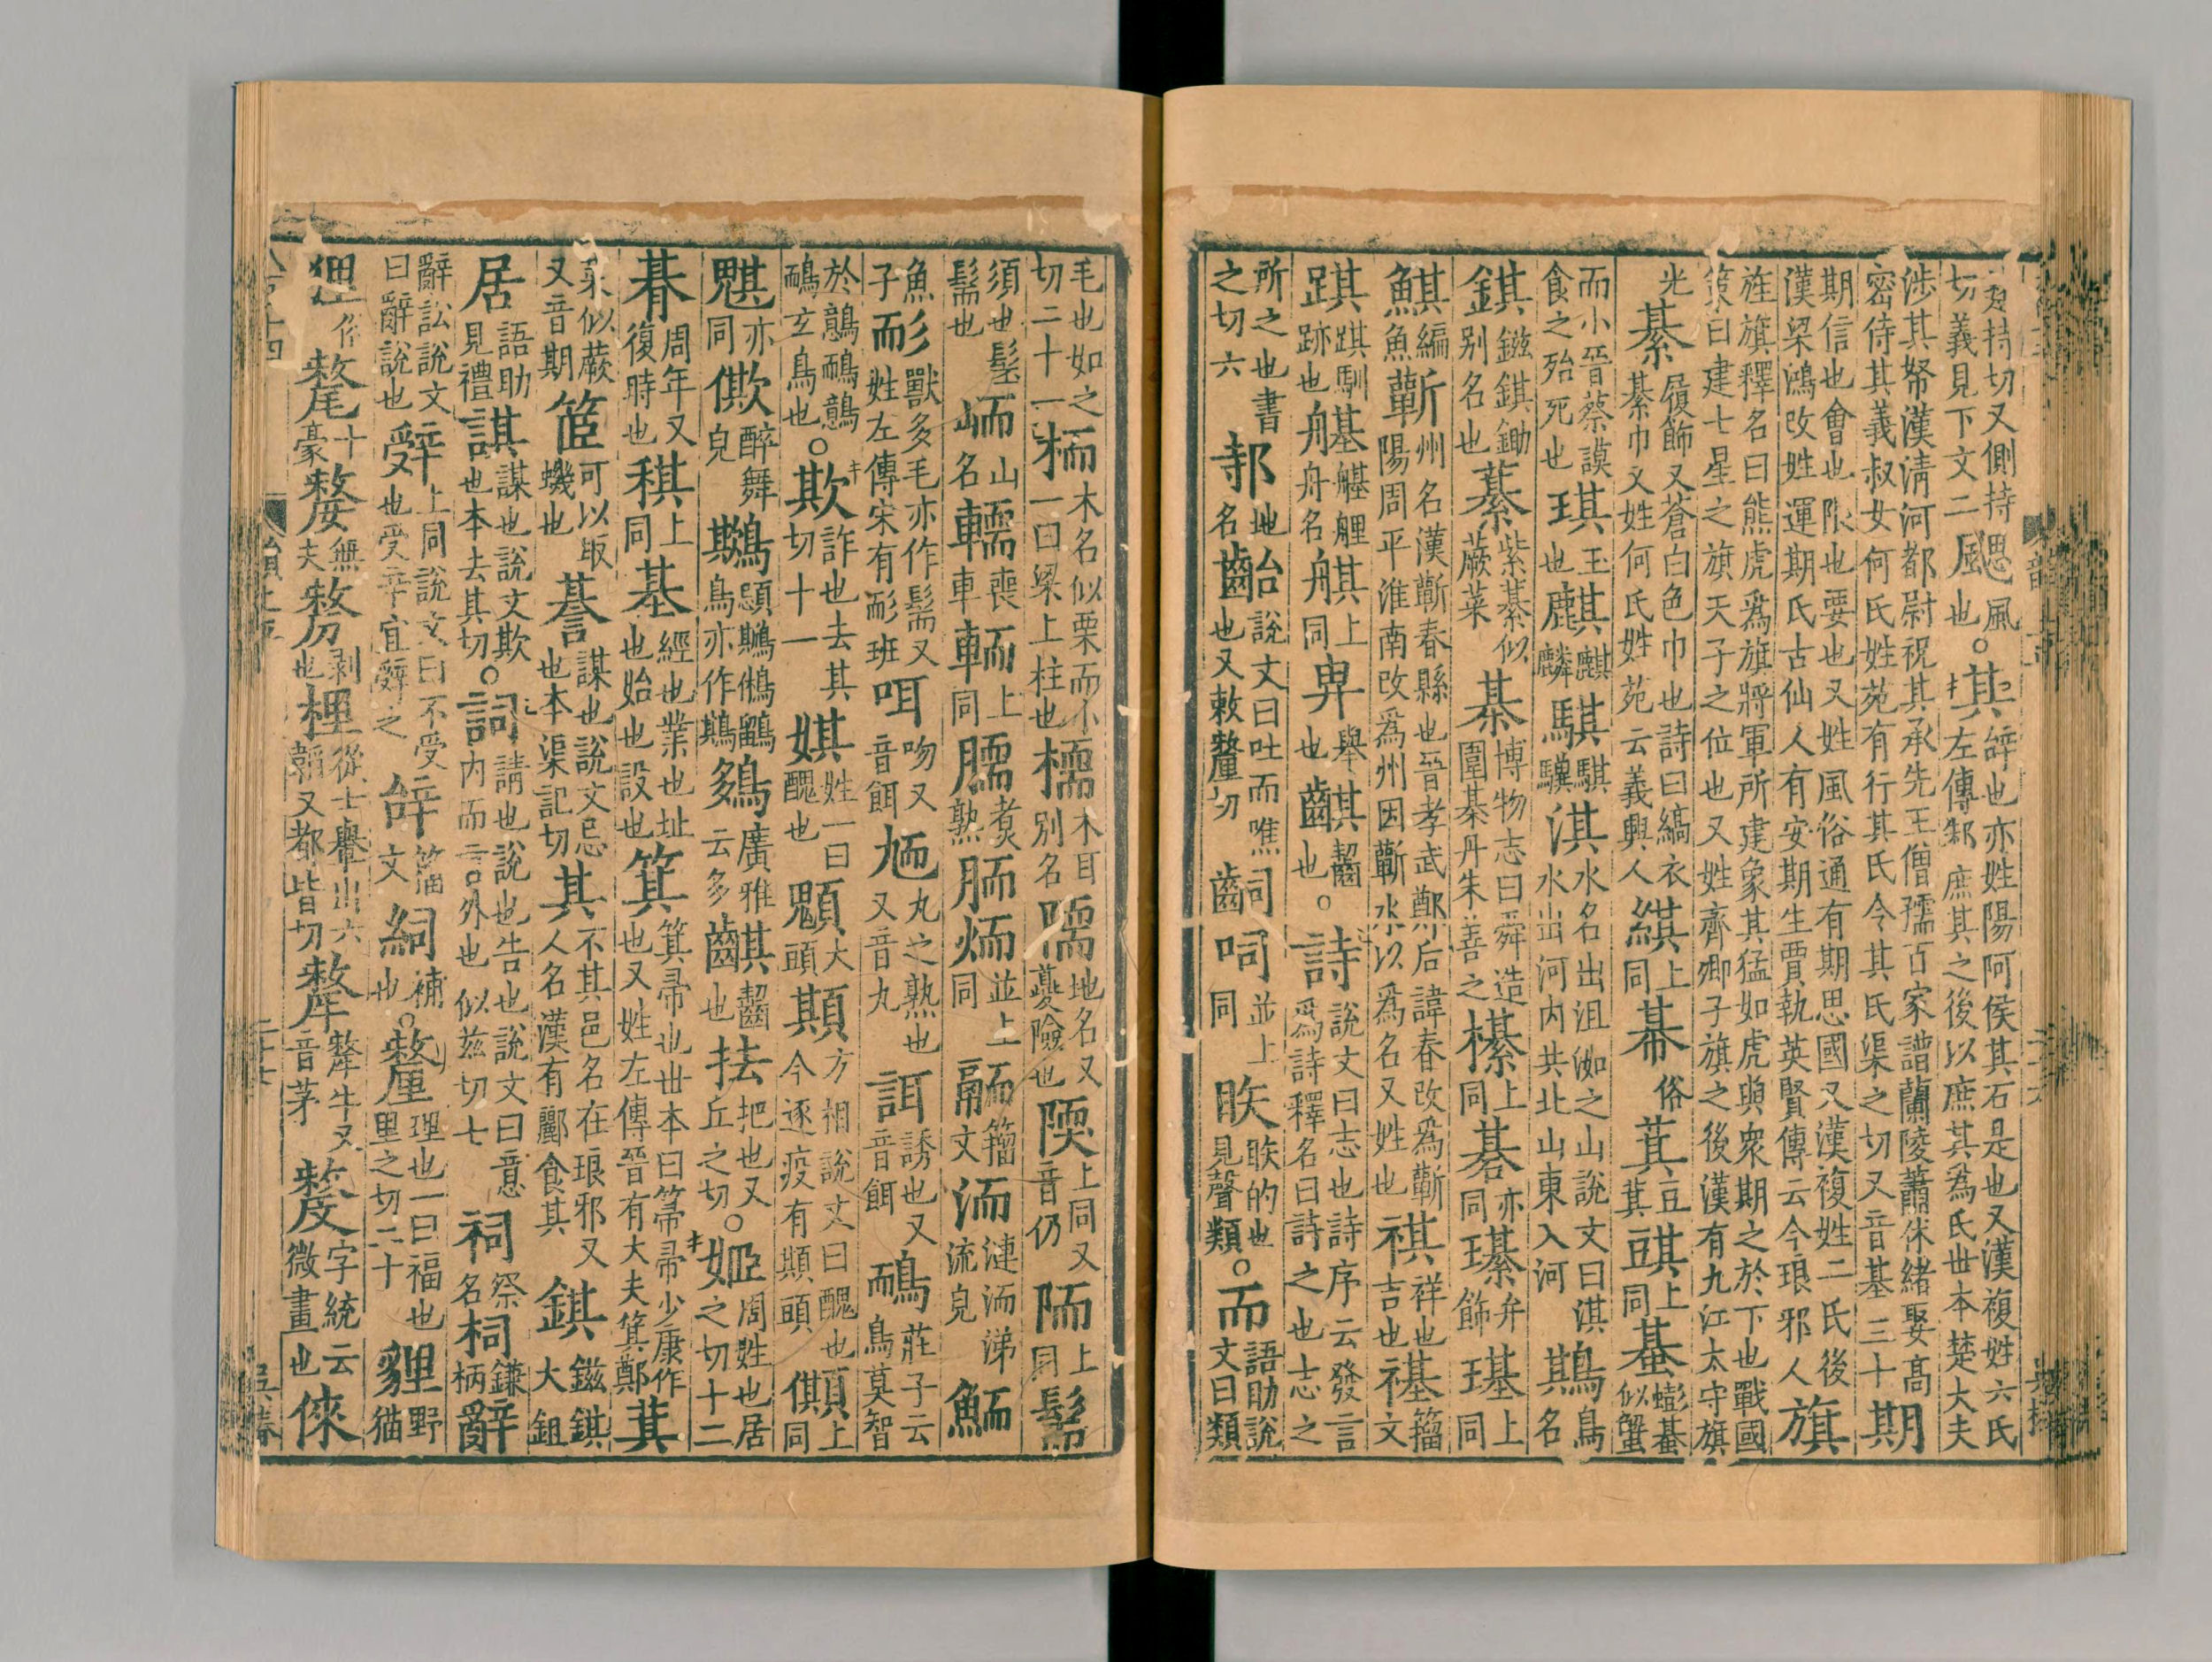 楚持切又側持切義見下文二颸風也。其辝也亦姓陽阿侯其石是也又漢複姓六氏左傳邾庶其之後以庶其爲氏世本楚大夫
涉其帑漢清河都尉祝其承先王僧孺百家譜蘭陵蕭休緒娶高密侍其義叔女何氏姓苑有行其氏今其氏渠之切又音基三十期
期信也會也限也要也又姓風俗通有期思國又漢複姓二氏後漢梁鴻改姓運期氏古仙人有安期生賈執英賢傳云今琅邪人旗
旌旗釋名曰熊虎爲旗將軍所建象其猛如虎與衆期之於下也戰國策曰建七星之旗天子之位也又姓齊卿子旗之後漢有九江太守旗
光綦履飾又蒼白色巾也詩曰縞衣綦巾又姓何氏姓苑云義興人綨上同帺俗萁豆萁䜴上同蜝蟛蜝似蟹
而小晉蔡謨食之殆死也琪玉也麒麒麟騏騏驥淇水名出沮洳之山說文曰淇水出河內共北山東入河鶀鳥名
錤鎡錤鋤別名也藄紫藄似蕨菜棊博物志曰舜造圍棊丹朱善之櫀上同碁亦同𤪌弁飾璂上同
鯕編魚蘄州名漢蘄春縣也晉孝武鄭后諱春改爲蘄陽周平淮南改爲州因蘄水以爲名又姓也祺祥也吉也禥籀文
踑踑馴跡也舟名上同畁舉也齧也。詩說文曰志也詩序云發言爲詩釋名曰詩之也志之
所之也書之切六邿地名齝說文曰吐而噍也又敕釐切呞並上同眣眣的也見聲類。而語助說文曰類
毛也如之切二十一栭木名似栗而小一曰梁上柱也檽木耳別名隭地名又險也陾上同又音仍陑上同髵
須也髵也峏山名轜喪車輀上同臑煮熟胹並上同籀文洏漣洏涕流皃鮞
魚子耏獸多毛亦作髵又姓左傳宋有耏班咡吻又音餌丸之熟也又音丸誀誘也又音餌鴯鳥莊子云鳥莫智
於鷾鴯鴯鷾玄鳥也。欺詐也去其切十一娸姓一曰醜也大頭䫏方相說文曰醜也今逐疫有䫏頭上同
魌亦同僛醉舞皃鳥亦作廣雅云多齧也抾把也又丘之切。姬周姓也居之切十二
朞周年又復時也稘上同基經也業也址也始也設也箕箕帚也世本曰箒帚少康作也又姓左傳晉有大夫箕鄭萁
菜似蕨又音期可以取蟣也諅謀也說文忌也本渠記切其不其邑名在琅邪又人名漢有酈食其錤鎡錤大鉏
居語助見禮諆謀也說文欺也本去其切。詞請也說也告也說文曰意內而言外也似兹切七祠祭名柌鎌柄辭
辭訟說文曰辭說也辤上同說文曰不受也受辛宜辤之辝籀文䋖補也。釐理也一曰福也里之切二十貍野猫
狸俗氂十豪嫠無夫剺剥也梩從士轝出六韜又都皆切犛犛牛又音茅漦字統云微畫也倈